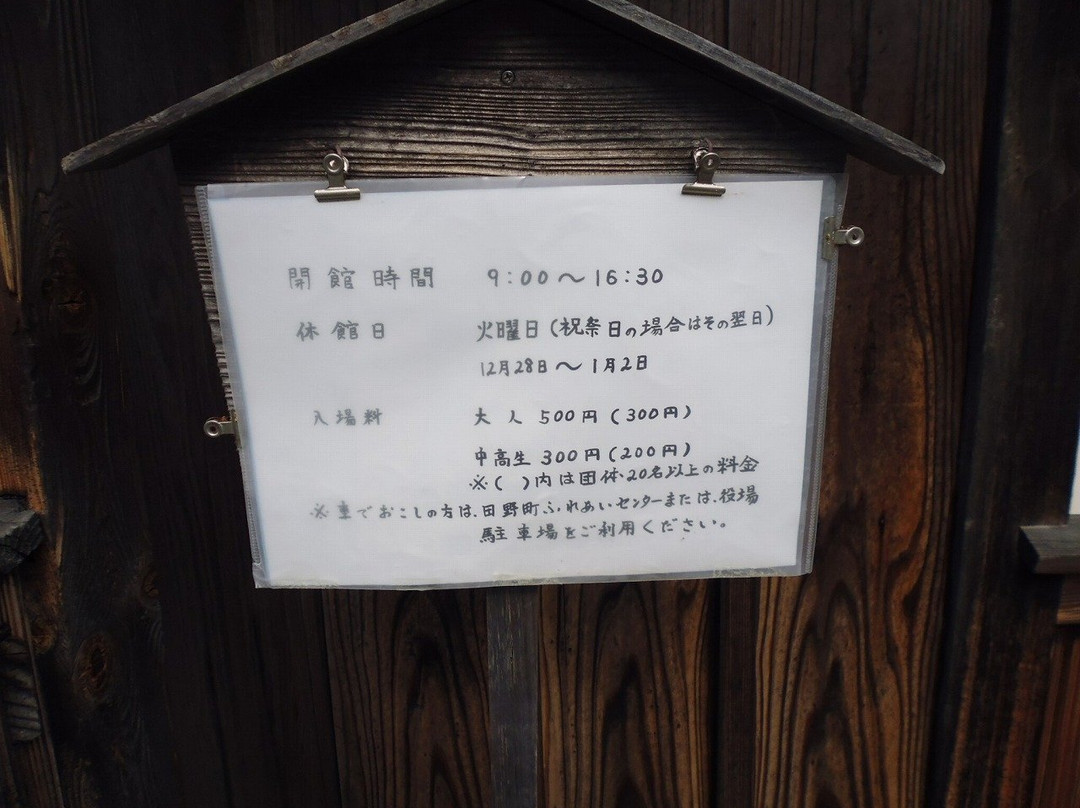 開館時間 9:00～16:30
休館日 火曜日(祝祭日の場合はその翌日)
12月28日～1月2日
入場料 大人 500円(300円)
中高生 300円(200円)
※( )内は団体20名以上の料金
※車でおこしの方は、日野町ふれあいセンターまたは、役場
駐車場をご利用ください。